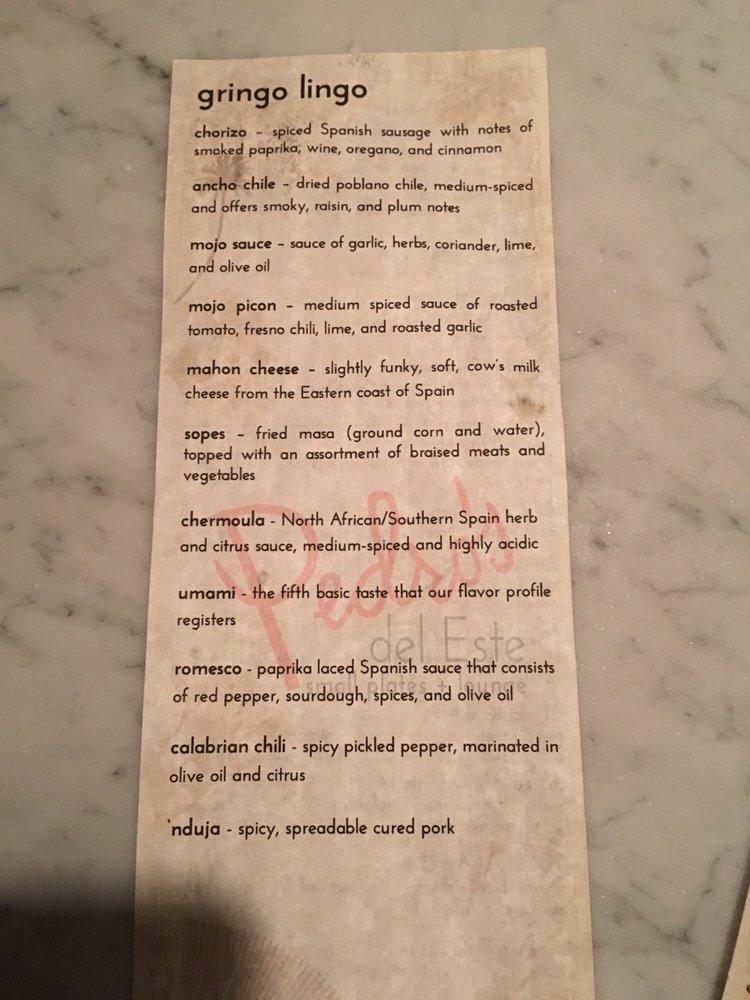 gringo lingo
chorizo - spiced Spanish sausage with notes of
smoked paprika, wine, oregano, and cinnamon
ancho chile - dried poblano chile, medium-spiced
and offers smoky, raisin, and plum notes
mojo sauce - sauce of garlic, herbs, coriander, lime,
and olive oil
mojo picon - medium spiced sauce of roasted
tomato, fresno chili, lime, and roasted garlic
mahon cheese - slightly funky, soft, cow's milk
cheese from the Eastern coast of Spain
sopes - fried masa (ground corn and water),
topped with an assortment of braised meats and
vegetables
chermoula - North African/Southern Spain herb
and citrus sauce, medium-spiced and highly acidic
umami - the fifth basic taste that our flavor profile
registers
Pedro's
del Este
small plates + lounge
romesco - paprika laced Spanish sauce that consists
of red pepper, sourdough, spices, and olive oil
calabrian chili - spicy pickled pepper, marinated in
olive oil and citrus
'nduja - spicy, spreadable cured pork